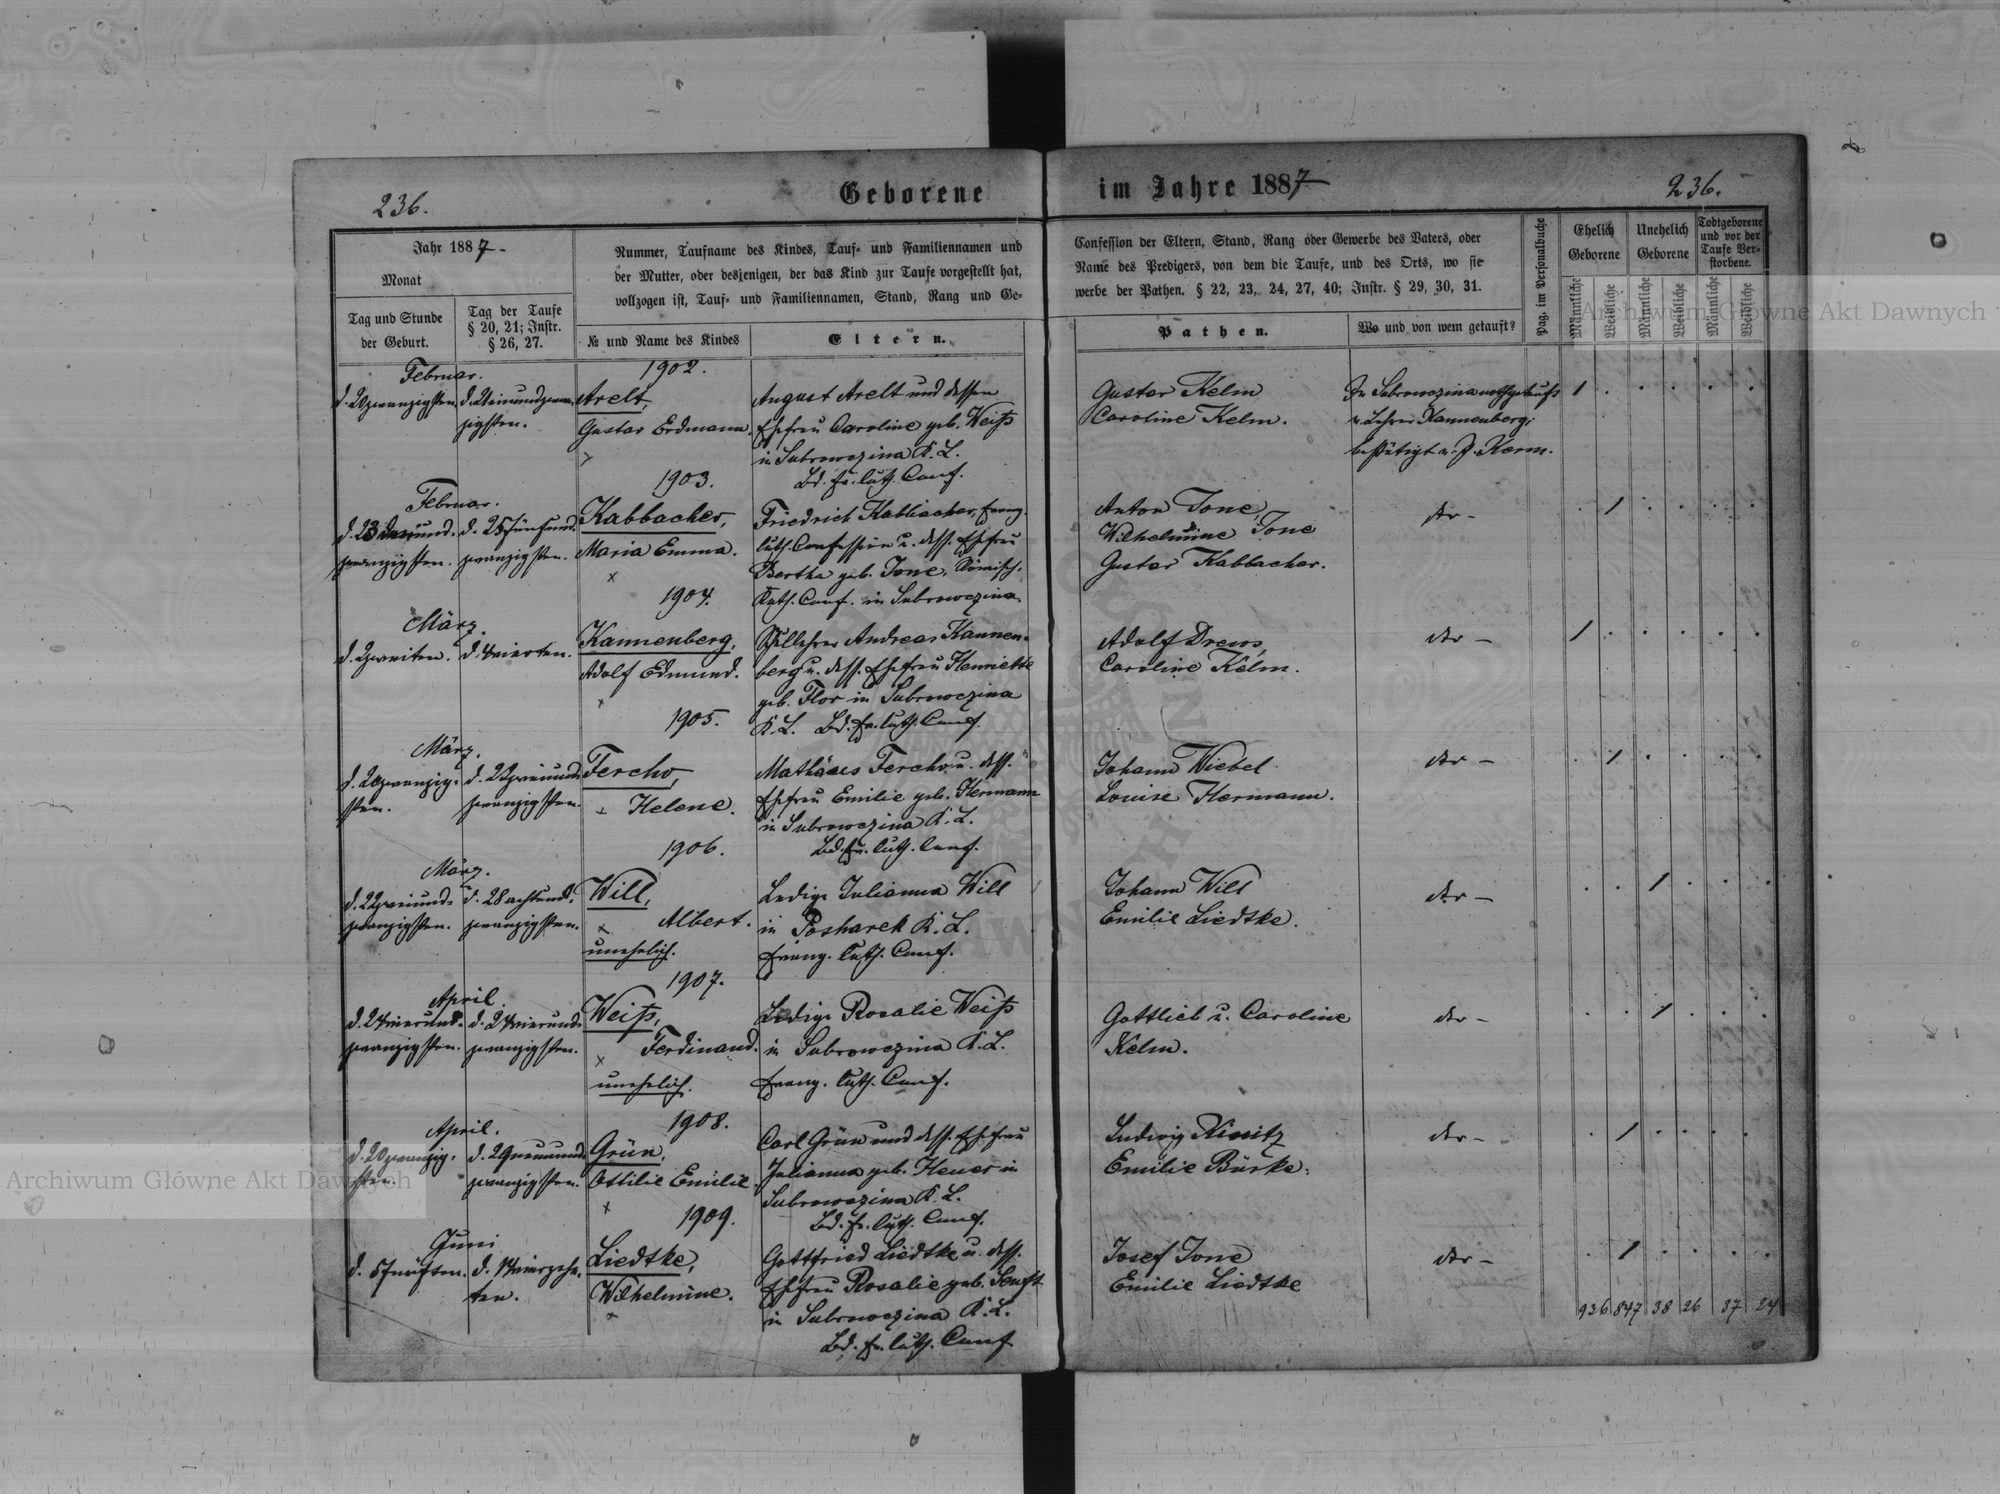 236.
Geborene
im Jahre 1887
236.
Jahr 1887.
Monat
Tag und Stunde
der Geburt.
Tag der Taufe
§ 20, 21; Instr.
§ 26, 27.
Nummer, Taufname des Kindes, Tauf- und Familiennamen und
der Mutter, oder desjenigen, der das Kind zur Taufe vorgestellt hat,
vollzogen ist, Tauf- und Familiennamen, Stand, Rang und Ge-
№ und Name des Kindes
Eltern.
Confession der Eltern, Stand, Rang oder Gewerbe des Vaters, oder
Name des Predigers, von dem die Taufe, und des Orts, wo sie
werbe der Pathen. § 22, 23, 24, 27, 40; Instr. § 29, 30, 31.
Pathen.
Wo und von wem getauft?
Pag. im Personalbuche
Ehelich
Geborene
Unehelich
Geborene
Todtgeborene
und vor der
Taufe Ver-
storbene.
Männliche
Weibliche
Männliche
Weibliche
Männliche
Weibliche
Februar.
d. 20 zwanzigsten.
d. 21 einundzwan-
zigsten.
1902.
Arelt,
Gustav Erdmann.
×
August Arelt und dessen
Ehefrau Caroline geb. Weiß
in Subrowczina K. L.
Bd. Ev. luth. Conf.
Gustav Kelm
Caroline Kelm.
In Subrowczina nothgetauft
v. Lehrer Kannenberg;
bestätigt v. P. Karm.
1 . . . . .
Februar.
d. 23 dreiund-
zwanzigsten.
d. 25 fünfund-
zwanzigsten.
1903.
Kabbacher,
Maria Emma.
×
Friedrich Kabbacher, Evang.
luth. Confession u. dess. Ehefrau
Bertha geb. Jone, Römisch-
Kath. Conf. in Subrowczina.
Anton Jone,
Wilhelmine Jone
Gustav Kabbacher.
dto -
. 1 . . . .
März.
d. 2 zweiten.
d. 4 vierten.
1904.
Kannenberg,
Adolf Edmund.
×
Schullehrer Andreas Kannen-
berg u. dess. Ehefrau Henriette
geb. Flor in Subrowczina
K. L. Bd. Ev. luth. Conf.
Adolf Drews,
Caroline Kelm.
dto -
1 . . . . .
März.
d. 20 zwanzig-
sten.
d. 22 zweiund-
zwanzigsten.
1905.
Fercho,
× Helene.
Mathäus Fercho u. dess.
Ehefrau Emilie geb. Hermann
in Subrowczina K. L.
Bd. Ev. luth. Conf.
Johann Wiebel
Louise Hermann.
dto -
. 1 . . . .
März.
d. 22 zweiund-
zwanzigsten.
d. 28 achtund-
zwanzigsten.
1906.
Will,
× Albert.
unehelich.
Ledige Julianna Will
in Posharek K. L.
Evang. luth. Conf.
Johann Will
Emilie Liedtke.
dto -
. . 1 . . .
April.
d. 24 vierund-
zwanzigsten.
d. 24 vierund-
zwanzigsten.
1907.
Weiß,
× Ferdinand.
unehelich.
Ledige Rosalie Weiß
in Subrowczina K. L.
Evang. luth. Conf.
Gottlieb u. Caroline
Kelm.
dto -
. . 1 . . .
April.
d. 20 zwanzig-
sten.
d. 29 neunund-
zwanzigsten.
1908.
Grün,
Ottilie Emilie
×
Carl Grün und dess. Ehefrau
Julianna geb. Heuer in
Subrowczina K. L.
Bd. Ev. luth. Conf.
Ludwig
Emilie Bürke.
dto -
. 1 . . . .
Juni
d. 5 fünften.
d. 14 vierzehn-
ten.
1909.
Liedtke,
Wilhelmine.
×
Gottfried Liedtke u. dess.
Ehefrau Rosalie geb. Senft
in Subrowczina K. L.
Bd. Ev. luth. Conf
Josef Jone
Emilie Liedtke
dto -
. 1 . . . .
926 847 38 26 37 24
Archiwum Główne Akt Dawnych
Archiwum Główne Akt Dawnych